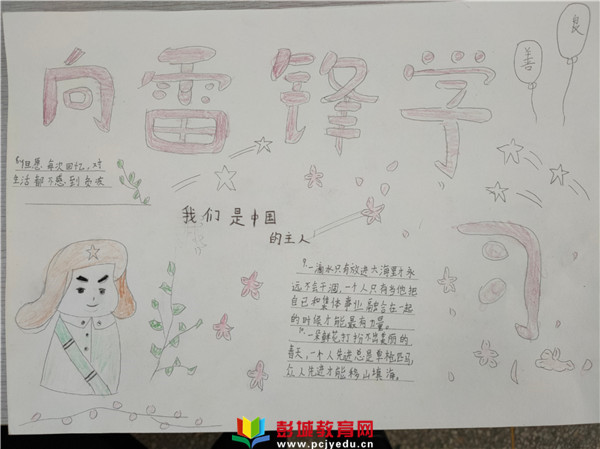 向雷锋学习
善
良
但愿每次回忆,对
生活都不感到负疚
我们是中国
的主人
一滴水只有放进大海里才永
远不会干涸,一个人只有当他把
自己和集体事业融合在一起
的时候才能最有力量。
一朵鲜花打扮不出美丽的
春天,一个人先进总是单枪匹马,
众人先进才能移山填海。
彭城教育网
www.pcjyedu.cn